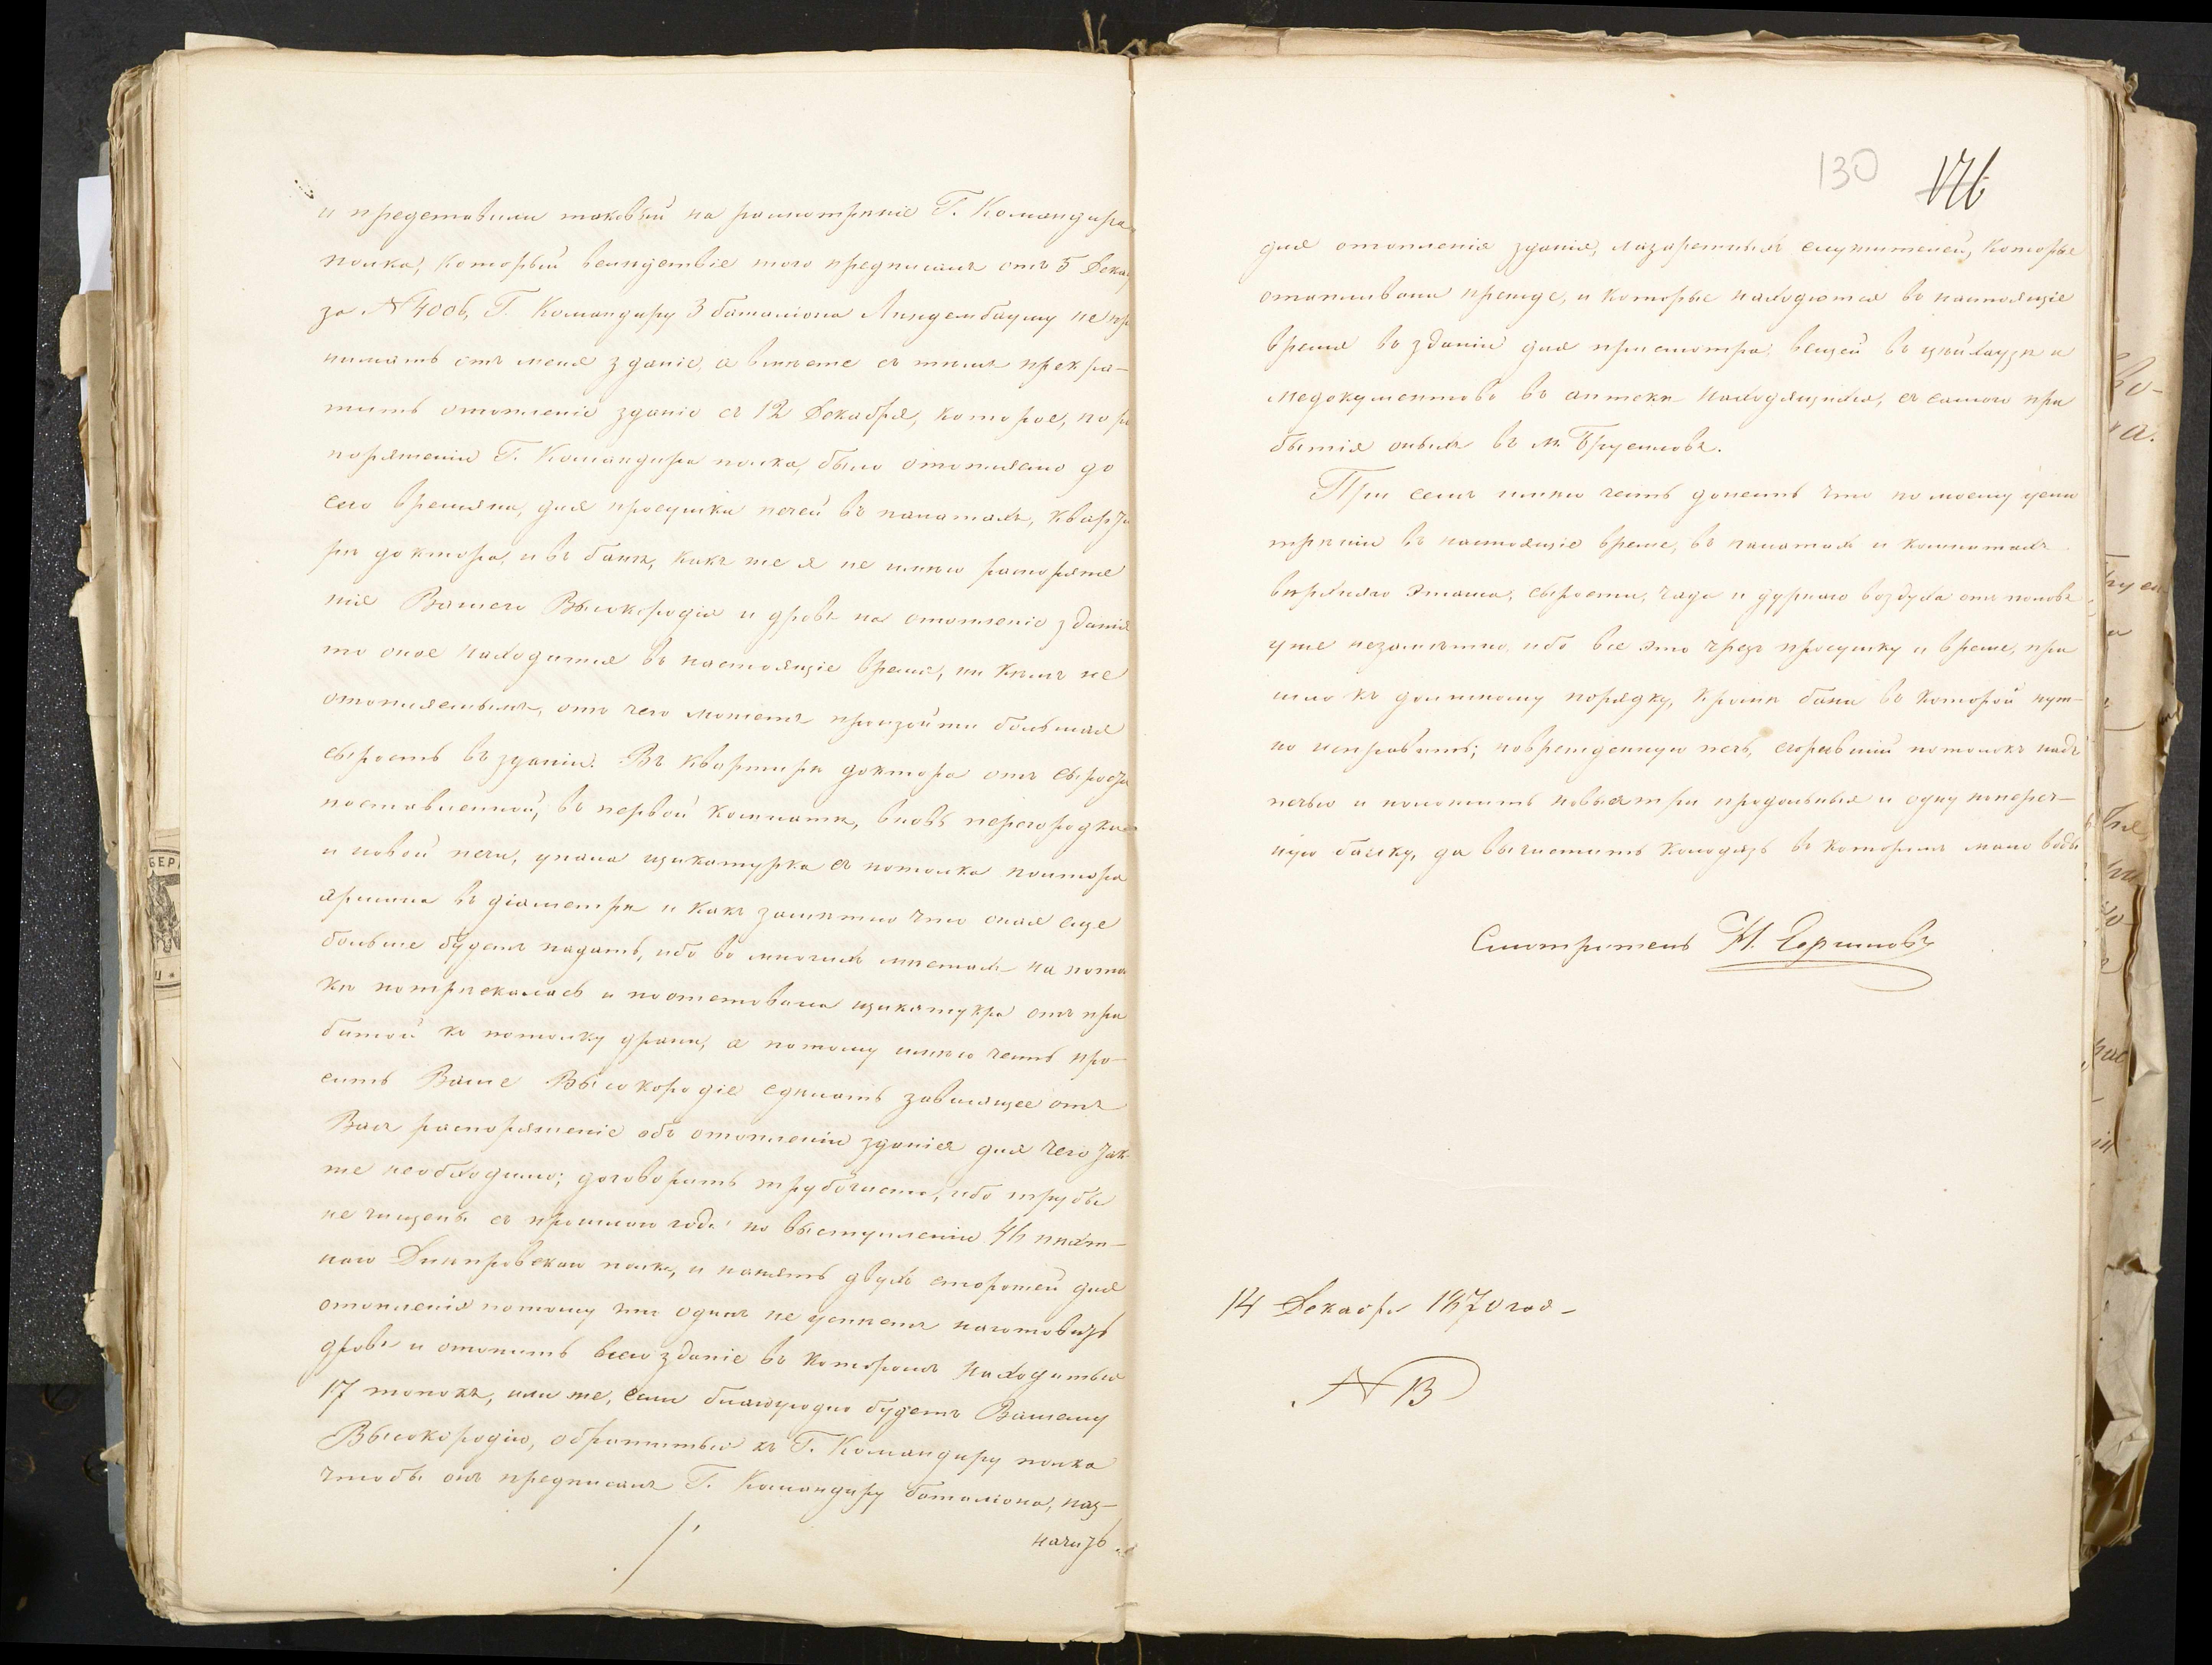 и представили таковый на разсмотрѣніе Г. Командира
полка, который вслѣдствіе того предписалъ отъ 5 Дека
за № 4006, Г. Командиру 3 баталіона Линдембауму не пр
нимать отъ меня зданіе, а вмѣсте съ тѣмъ прекра-
тить отопленіе зданіе съ 12 Декабря, которое, по р
поряженію Г. Командира полка, было отопляемо до
сего времяни, для просушки печей въ палатахъ, кварти
рѣ доктора, и въ банѣ, какъ же я не имѣю распоряже
нія Вашего Высокородія и дровъ на отопленіе зданія
то оное находится въ настоящіе время, ни кѣмъ не
отопляемымъ, отъ чего можетъ произойти большая
сырость въ зданіи. Въ квартирѣ доктора отъ сырости
поставленной, въ первой комнатѣ, вновь перегородки
и новой печи, упала щикатурка съ потолка полтора
аршина въ діаметрѣ и какъ замѣтно что оная еще
больше будетъ падать, ибо во многихъ мѣстахъ на потол
кѣ потрѣскалась и поотставала щикатукра отъ при
битой къ потолку драни, а потому имѣю честь про-
сить Ваше Высокородіе сдѣлать зависящее отъ
Васъ распоряженіе объ отопленіи зданія для чего так
же необходимо; договорить трубочиста, ибо трубы
не чищены съ прошлого года по выступленіи 46 пѣхот-
наго Днѣпровскаго полка, и нанять двухъ сторожей для
отопленія потому что одинъ не успѣетъ наготовить
дровъ и отопить всего зданіе въ которомъ находиться
17 топокъ, или же, если благоугодно будетъ Вашему
Высокородію, обратиться къ Г. Командиру полка
чтобы онъ предписалъ Г. Командиру баталіона, наз-
начить
130 176
для отопленія зданія, лазаретныхъ служителей, которые
отапливали прежде, и которые находются во настоящіе
время въ зданіи для присмотра вещей въ цейхаузѣ и
медокументовъ въ аптекѣ находящихся, съ самого при
бытія оныхъ въ м. Брусиловъ.
При семъ имѣю честь донесть что по моему усмо
трѣнію въ настоящіе время, въ палатахъ и комнатахъ
верхняго этажа, сырости, чада и дурнаго воздуха отъ половъ
уже незамѣтно, ибо все это чрезъ просушку и время, при
шло къ должному порядку, кромѣ бани въ которой нуж-
но исправить; поврежденную печь, сгорѣвшій потолокъ надъ
печью и положить новыя три продольныя и одну попереч-
ную балку, да вычистить колодязь въ которомъ мало воды
Смотритель Н.
14 Декабря 1870 года
№ 13